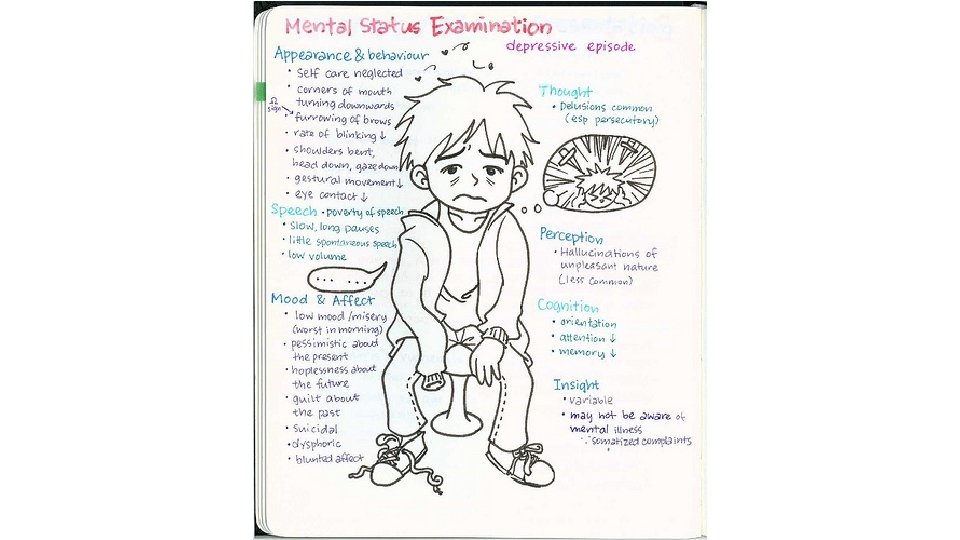 Mental Status Examination
depressive episode
Appearance & behaviour
• Self care neglected
• corners of mouth
turning downwards
Ω sign
• furrowing of brows
• rate of blinking ↓
• shoulders bent,
head down, gaze down
• gestural movement ↓
• eye contact ↓
Speech • poverty of speech
• slow, long pauses
• little spontaneous speech
• low volume
... ....
Mood & Affect
• low mood/misery
(worst in morning)
• pessimistic about
the present
• hoplessness about
the future
• guilt about
the past
• suicidal
• dysphoric
• blunted affect
Thought
• Delusions common
(esp persecutory)
Perception
• Hallucinations of
unpleasant nature
(less common)
Cognition
• orientation
• attention ↓
• memory ↓
Insight
• variable
• may not be aware of
mental illness
∵ somatized complaints